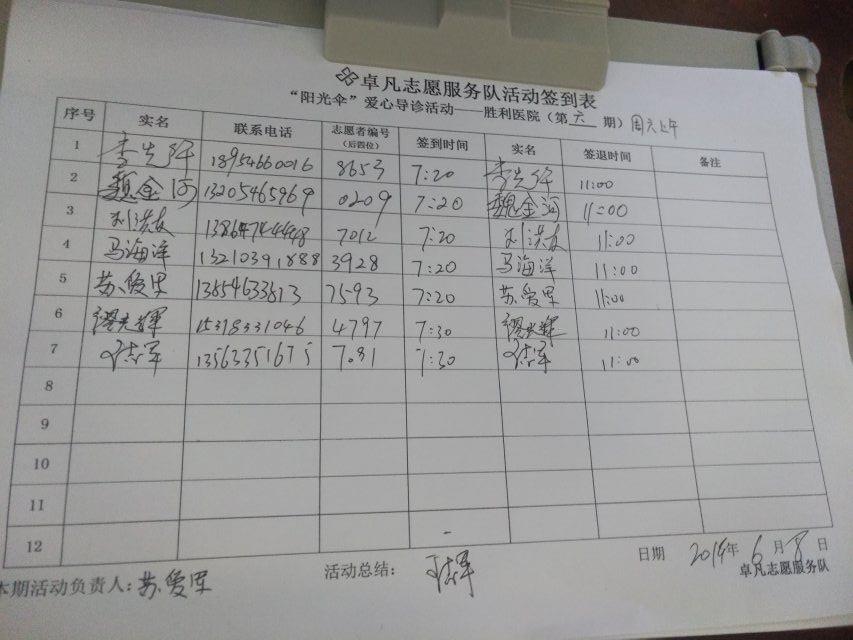 卓凡志愿服务队活动签到表
“阳光伞”爱心导诊活动——胜利医院（第六期）周六上午
序号 实名 联系电话 志愿者编号（后四位） 签到时间 实名 签退时间 备注
1 18954660016 8653 7:20 11:00
2 魏金河 13205465969 0209 7:20 魏金河 11:00
3 13864744448 7012 7:20 11:00
4 马海洋 13210391888 3928 7:20 马海洋 11:00
5 苏爱军 13654633613 7593 7:20 苏爱军 11:00
6 缪光辉 15318331046 4797 7:30 缪光辉 11:00
7 13563351675 7081 7:30 11:00
8
9
10
11
12
本期活动负责人：苏爱军 活动总结： 日期 2019年6月8日
卓凡志愿服务队